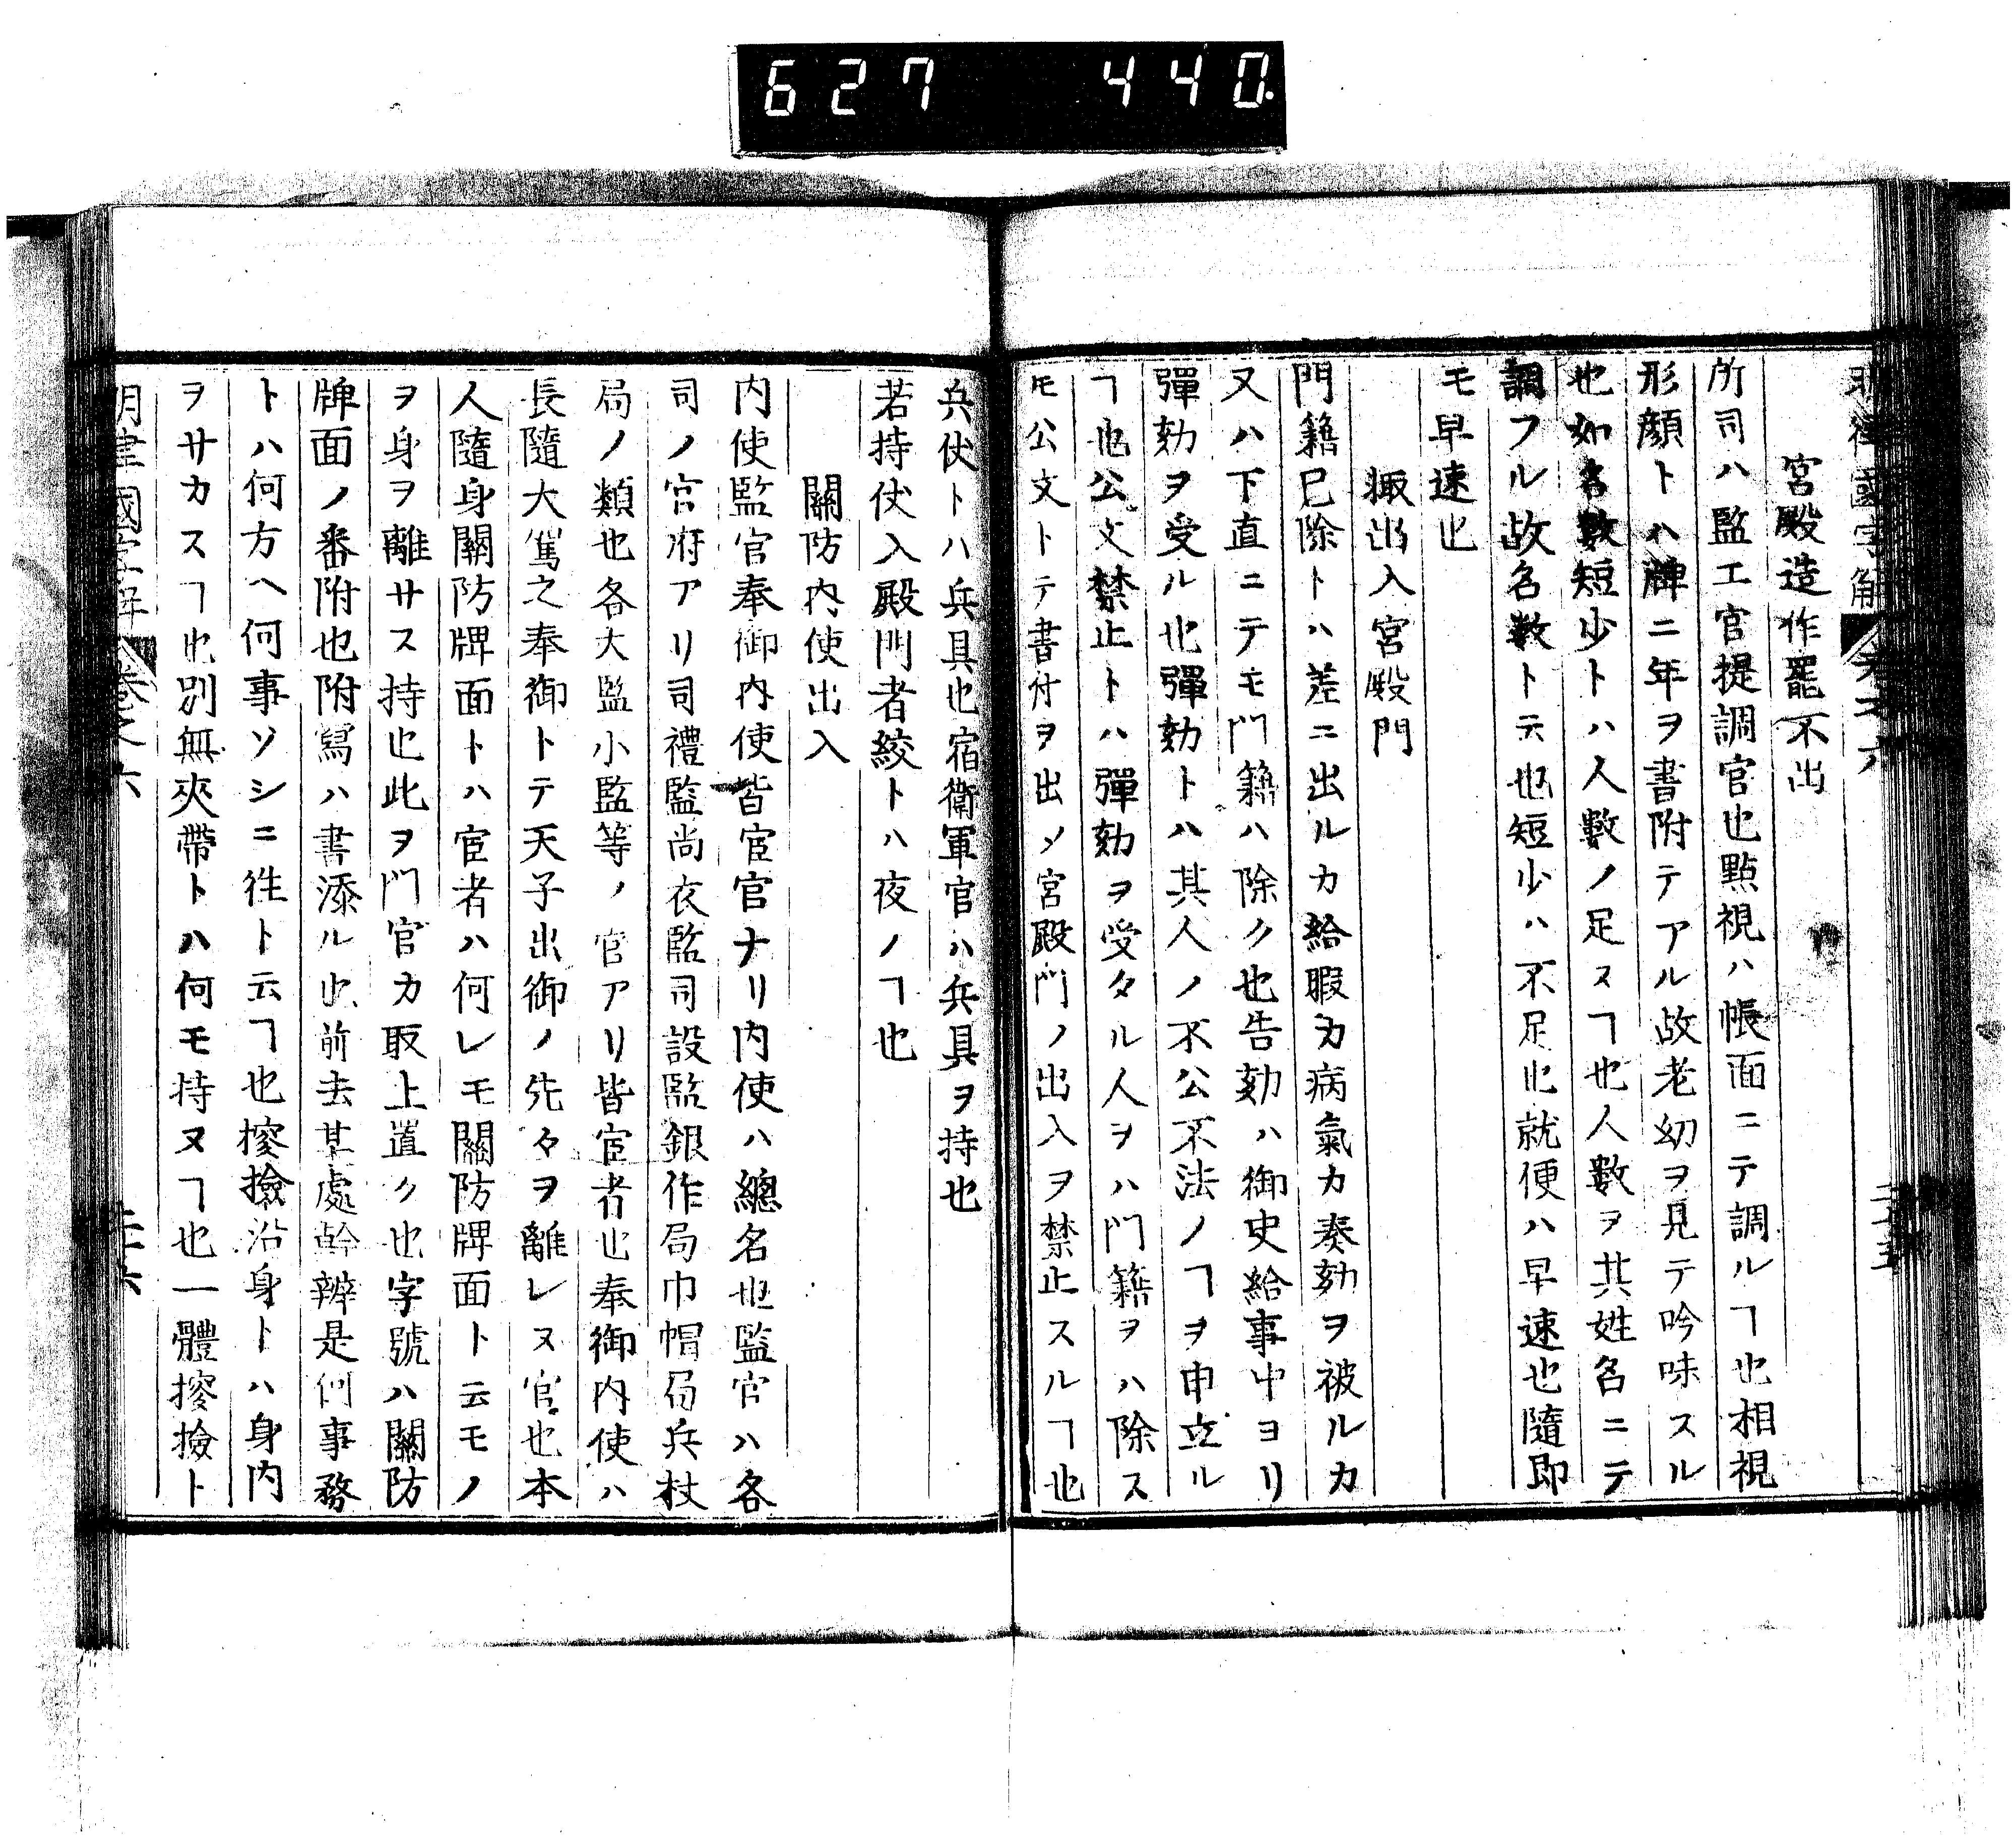 627 440
明律國字解 卷之六
宮殿造作罷不出
所司ハ監工官提調官也點視ハ帳面ニテ調ルヿ也相視
形顔トハ牌ニ年ヲ書附テアル故老幼ヲ見テ吟味スル
也如名數短少トハ人數ノ足スヿ也人數ヲ其姓名ニテ
調フル故名數ト云也短少ハ不足也就便ハ早速也隨即
モ早速也
輙出入宮殿門
門籍已除トハ差ニ出ルカ給暇カ病氣カ奏劾ヲ被ルカ
又ハ下直ニテモ門籍ハ除ク也告劾ハ御史給事中ヨリ
彈劾ヲ受ル也彈劾トハ其人ノ不公不法ノヿヲ申立ル
ヿ也公文禁止トハ彈劾ヲ受タル人ヲハ門籍ヲハ除ス
モ公文トテ書付ヲ出ノ宮殿門ノ出入ヲ禁止スルヿ也
兵仗トハ兵具也宿衛軍官ハ兵具ヲ持也
若持仗入殿門者絞トハ夜ノヿ也
關防内使出入
内使監官奉御内使皆宦官ナリ内使ハ總名也監官ハ各
司ノ官府アリ司禮監尚衣監司設監銀作局巾帽局兵杖
局ノ類也各大監小監等ノ官アリ皆宦者也奉御内使ハ
長隨大駕之奉御トテ天子出御ノ先々ヲ離レヌ官也本
人隨身關防牌面トハ宦者ハ何レモ關防牌面ト云モノ
ヲ身ヲ離サス持也此ヲ門官カ取上置ク也字號ハ關防
牌面ノ番附也附寫ハ書添ル也前去某處幹辦是何事務
トハ何方ヘ何事ソシニ徃ト云ヿ也搜撿沿身トハ身内
ヲサカスヿ也別無夾帶トハ何モ持ヌヿ也一體搜撿ト
明律國字解 卷之六